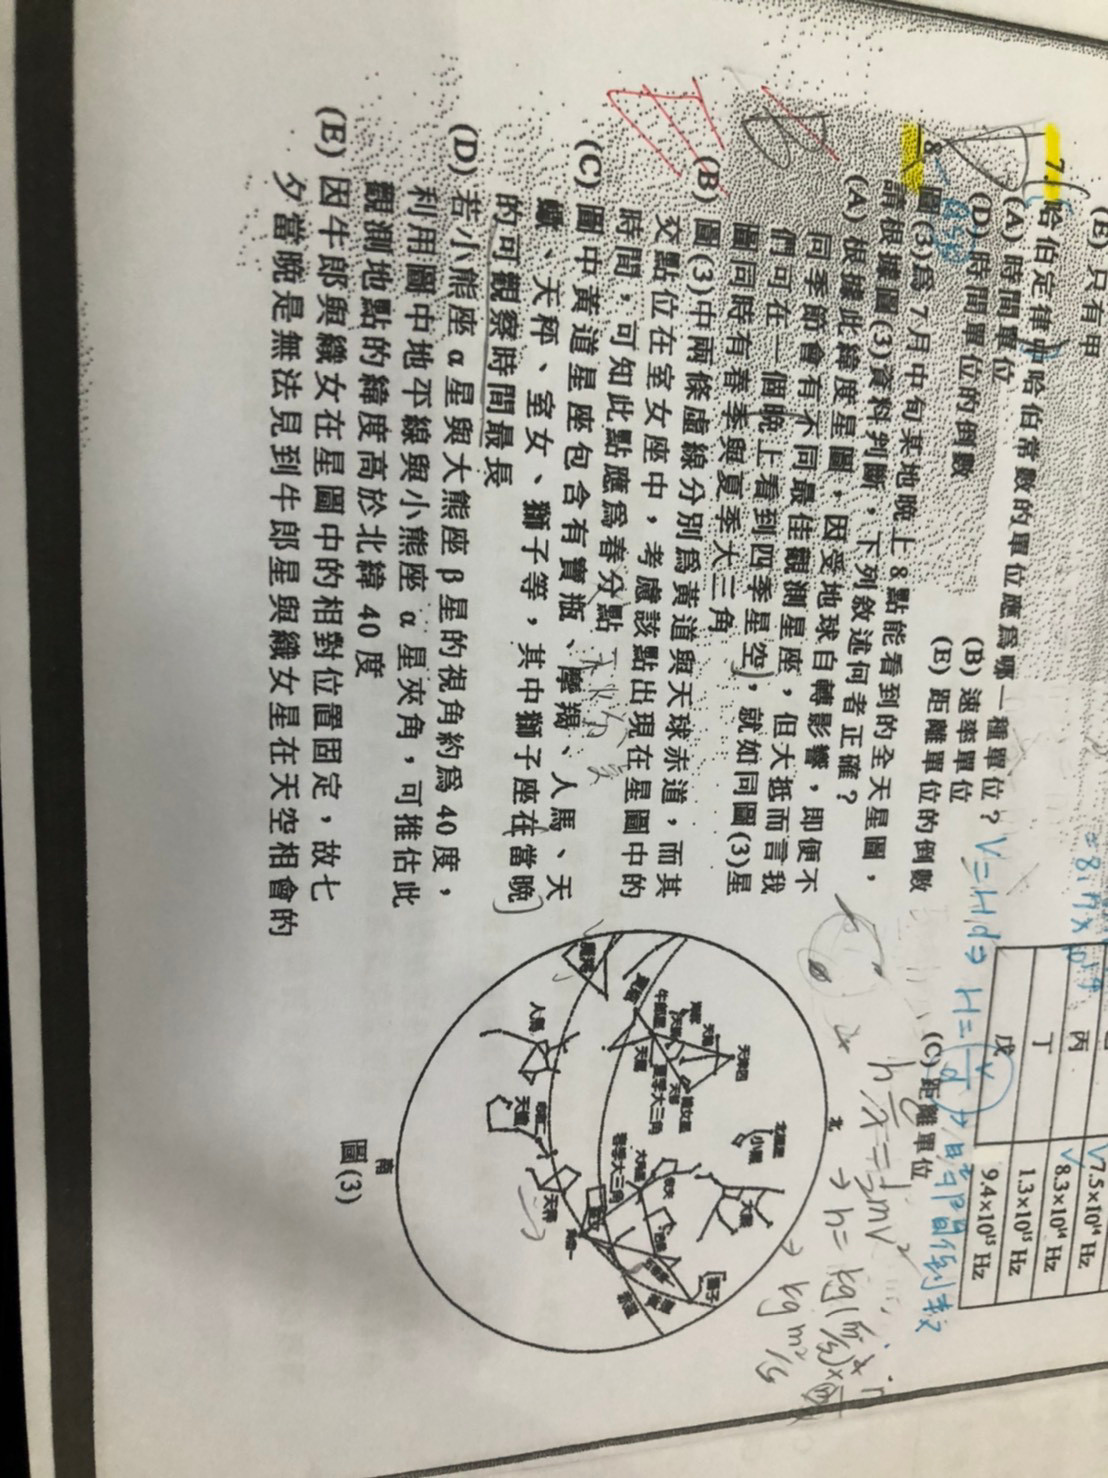 (E) 只有甲
7. 哈伯定律中哈伯常數的單位應為哪一種單位？ V=Hd⇒ H=v/d
(A) 時間單位
(B) 速率單位
(C) 距離單位
(D) 時間單位的倒數
(E) 距離單位的倒數
8. 圖(3)為 7月中旬某地晚上 8點能看到的全天星圖，
請根據圖(3)資料判斷，下列敘述何者正確？
(A) 根據此緯度星圖，因受地球自轉影響，即便不
同季節會有不同最佳觀測星座，但大抵而言我
們可在一個晚上看到四季星空，就如同圖(3)星
圖同時有春季與夏季大三角
(B) 圖(3)中兩條虛線分別為黃道與天球赤道，而其
交點位在室女座中，考慮該點出現在星圖中的
時間，可知此點應為春分點
(C) 圖中黃道星座包含有寶瓶、摩羯、人馬、天
蠍、天秤、室女、獅子等，其中獅子座在當晚
的可觀察時間最長
(D) 若小熊座 α 星與大熊座 β 星的視角約為 40 度，
利用圖中地平線與小熊座 α 星夾角，可推估此
觀測地點的緯度高於北緯 40 度
(E) 因牛郎與織女在星圖中的相對位置固定，故七
夕當晚是無法見到牛郎星與織女星在天空相會的
丙
丁
戊
7.5×10¹⁴ Hz
8.3×10¹⁴ Hz
1.3×10¹⁵ Hz
9.4×10¹⁵ Hz
北
天津四
北極星
小熊
大熊
織女星
牛郎星
天鷹
夏季大三角
春季大三角
牧夫
獅子
室女
角宿一
天秤
天蠍
人馬
南
圖(3)